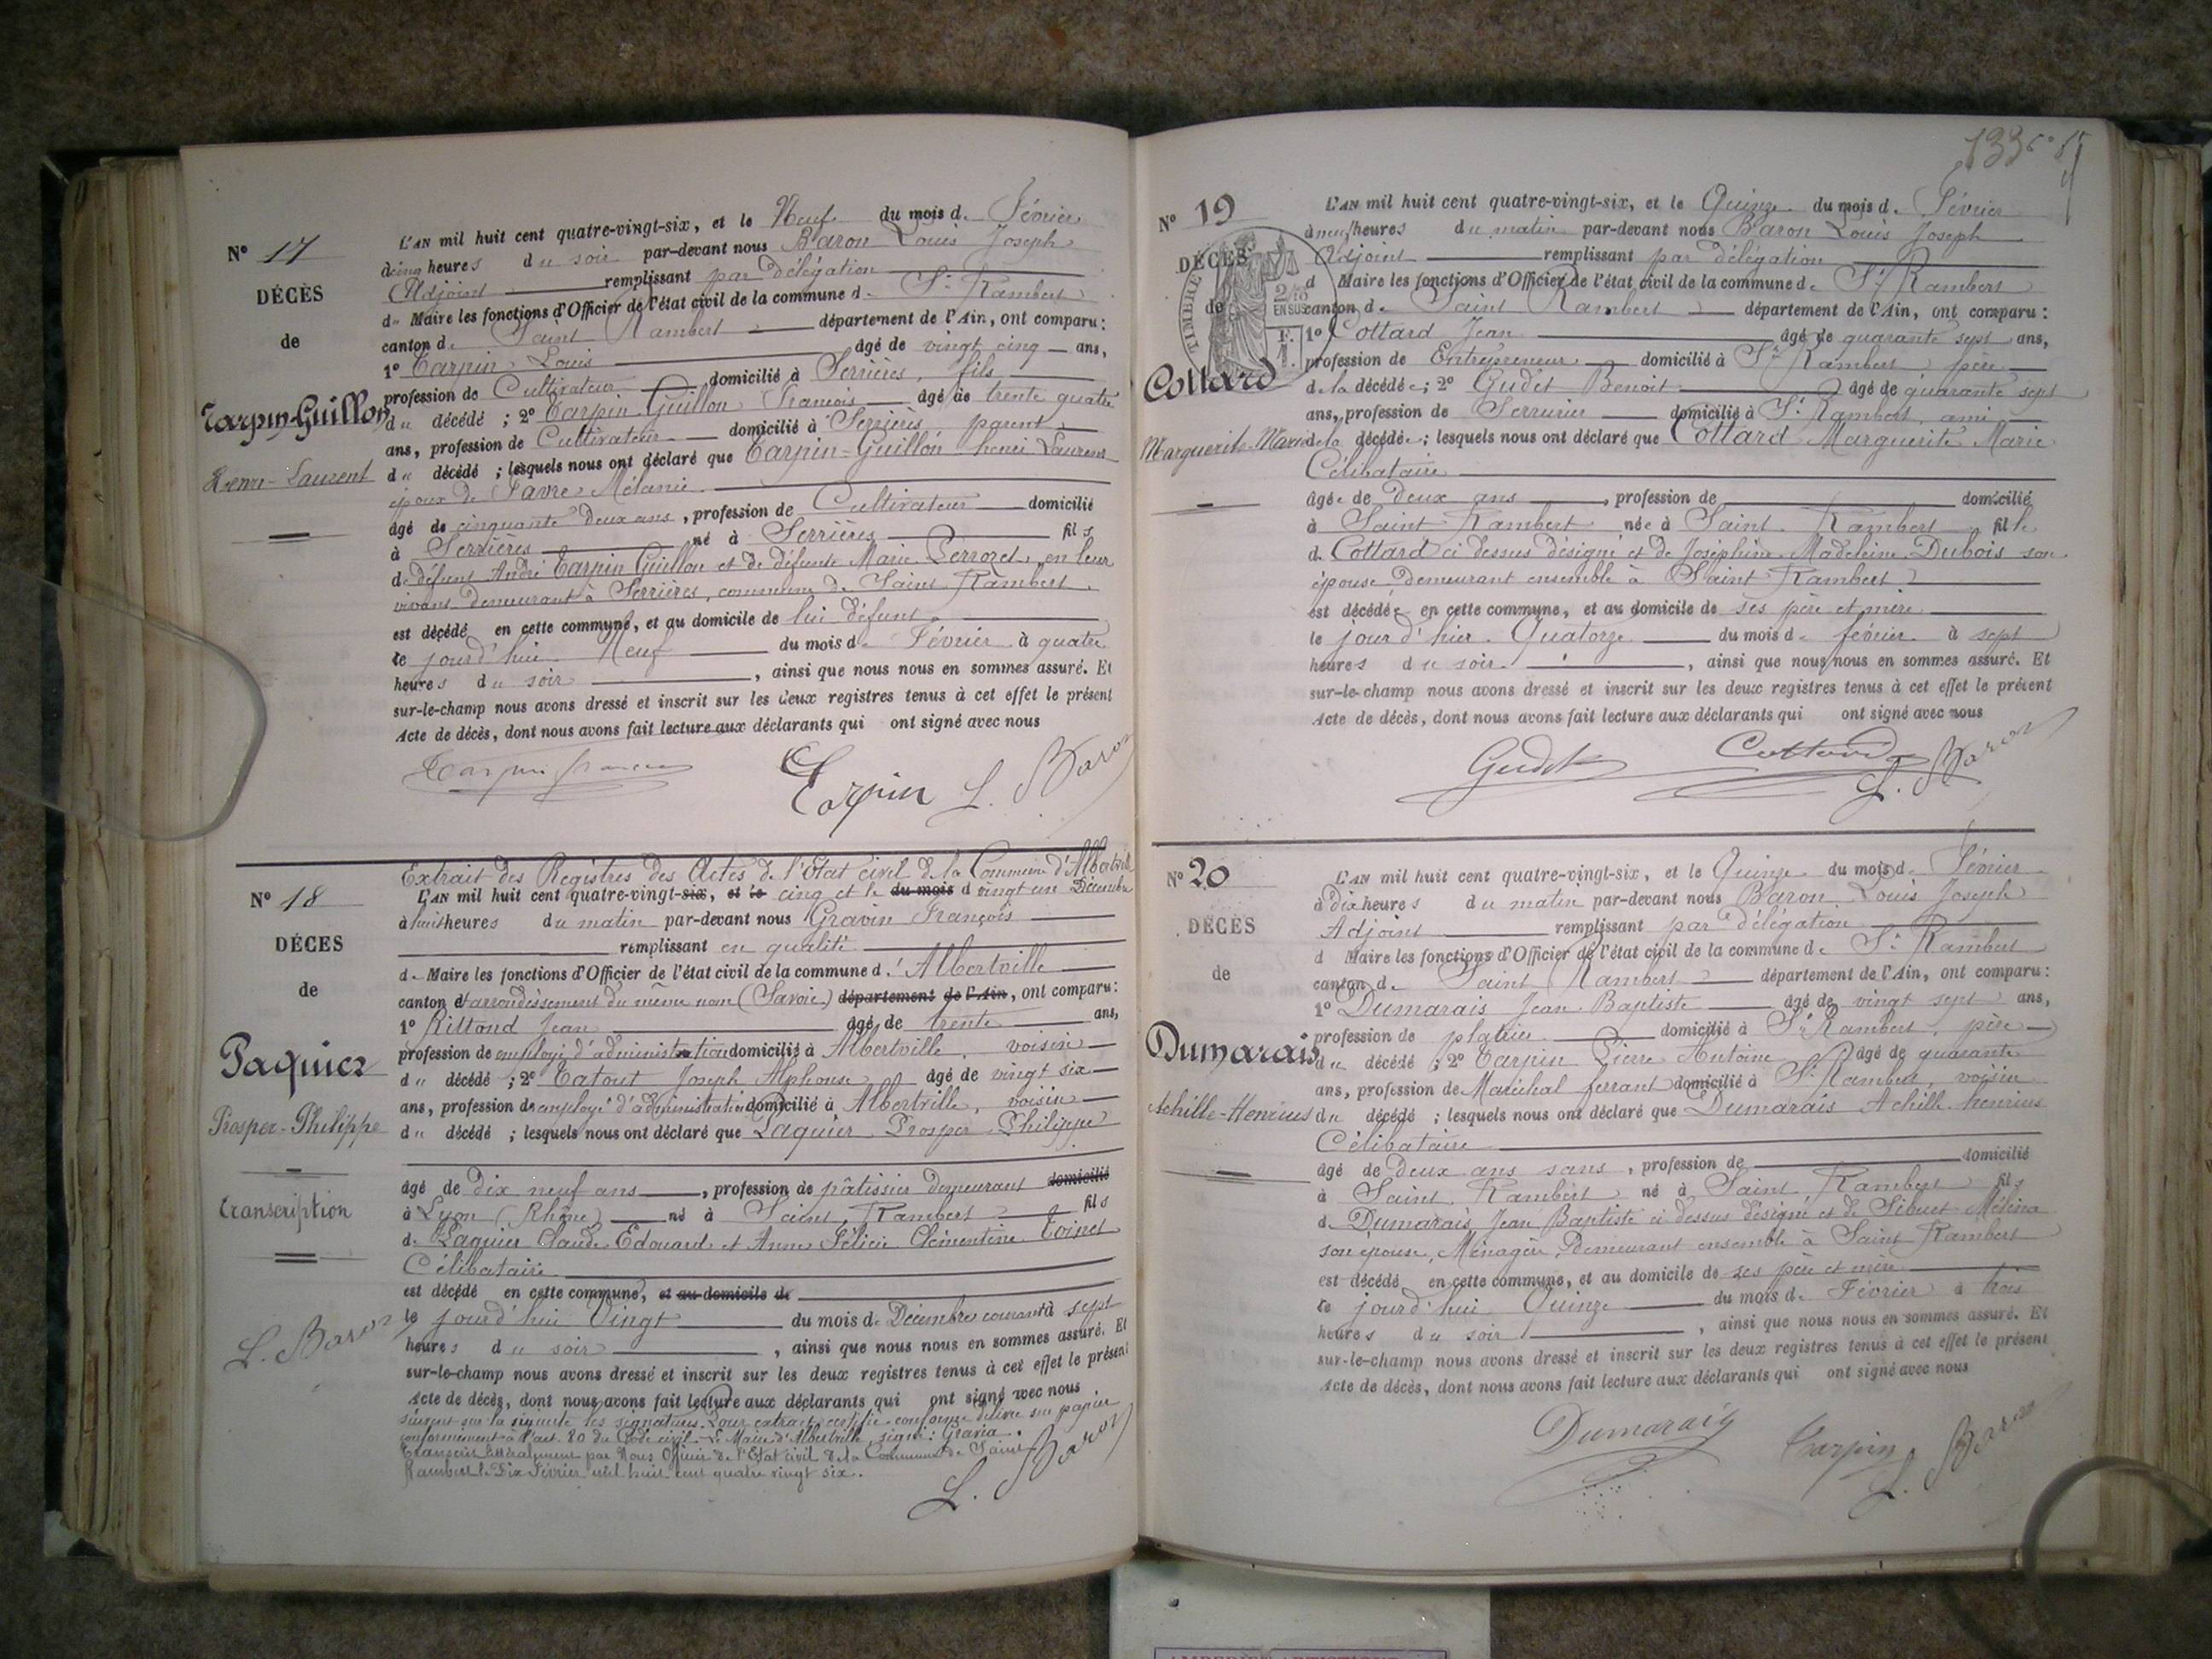 N° 17
DÉCÈS
de
Tarpin-Guillon
Henri-Laurent
L'AN mil huit cent quatre-vingt-six, et le Neuf du mois d. Février
à cinq heures du soir par-devant nous Baron Louis Joseph
Adjoint remplissant par délégation
du Maire les fonctions d'Officier de l'état civil de la commune d. St Rambert
canton d. Saint Rambert département de l'Ain, ont comparu :
1° Tarpin Louis âgé de vingt cinq ans,
profession de Cultivateur domicilié à Serrières, fils
du décédé ; 2° Tarpin-Guillon François âgé de trente quatre
ans, profession de Cultivateur domicilié à Serrières, parent
du décédé ; lesquels nous ont déclaré que Tarpin-Guillon henri Laurent
époux de Favre Mélanie
âgé de cinquante deux ans, profession de Cultivateur domicilié
à Serrières né à Serrières fils
de défunt André Tarpin Guillon et de défunte Marie Perrozet, en leur
vivans demeurant à Serrières, commune de Saint Rambert
est décédé en cette commune, et au domicile de lui défunt
le jourd'hui Neuf du mois de Février à quatre
heures du soir, ainsi que nous nous en sommes assuré. Et
sur-le-champ nous avons dressé et inscrit sur les deux registres tenus à cet effet le présent
Acte de décès, dont nous avons fait lecture aux déclarants qui ont signé avec nous
Tarpin francois Tarpin L. Baron
N° 18
DÉCES
de
Paquier
Prosper-Philippe
transcription
L. Baron
Extrait des Registres des Actes de l'Etat civil de la Commune d'Albertville
L'AN mil huit cent quatre-vingt-six, et le cinq et le du mois d vingt un Décembre
à huit heures du matin par-devant nous Gravin François
remplissant en qualité
de Maire les fonctions d'Officier de l'état civil de la commune d'Albertville
canton et arrondissement du même nom (Savoie) département de l'Ain, ont comparu :
1° Rittond Jean âgé de trente ans,
profession de employé d'administration domicilié à Albertville, voisin
du décédé ; 2° Tatout Joseph Alphonse âgé de vingt six
ans, profession de employé d'administration domicilié à Albertville, voisin
du décédé ; lesquels nous ont déclaré que Paquier Prosper Philippe
âgé de dix neuf ans, profession de pâtissier demeurant domicilié
à Lyon (Rhône) né à Saint Rambert fils
de Paquier Claude Edouard et Anne Félicie Clémentine Toinet
Célibataire
est décédé en cette commune, et au domicile de
le jourd'hui Vingt du mois de Décembre courant à sept
heures du soir, ainsi que nous nous en sommes assuré. Et
sur-le-champ nous avons dressé et inscrit sur les deux registres tenus à cet effet le présent
Acte de décès, dont nous avons fait lecture aux déclarants qui ont signé avec nous.
suivent sur la minute les signatures. Pour extrait certifié conforme délivré sur papier
conformément à l'art. 80 du Code civil. Le Maire d'Albertville, signé : Gravin.
Transcrit littéralement par Nous Officier de l'Etat civil de la Commune de Saint
Rambert le Dix Février mil huit cent quatre vingt six.
L. Baron
133
N° 19
DÉCÈS
de
TIMBRE
2/10
EN SUS
F.
1.
Cottard
Marguerite Marie
L'AN mil huit cent quatre-vingt-six, et le Quinze du mois d. Février
à neuf heures du matin par-devant nous Baron Louis Joseph
Adjoint remplissant par délégation
d Maire les fonctions d'Officier de l'état civil de la commune de St Rambert
canton d. Saint Rambert département de l'Ain, ont comparu :
1° Cottard Jean âgé de quarante sept ans,
profession de Entrepreneur domicilié à St Rambert, père
de la décédée ; 2° Gudet Benoit âgé de quarante sept
ans, profession de Serrurier domicilié à St Rambert, ami
de la décédée ; lesquels nous ont déclaré que Cottard Marguerite Marie
Célibataire
âgée de deux ans, profession de domicilié
à Saint Rambert née à Saint Rambert fille
d. Cottard ci dessus désigné et de Joséphine Madeleine Dubois son
épouse demeurant ensemble à Saint Rambert
est décédée en cette commune, et au domicile de ses père et mère
le jour d'hier Quatorze du mois de février à sept
heures du soir, ainsi que nous nous en sommes assuré. Et
sur-le-champ nous avons dressé et inscrit sur les deux registres tenus à cet effet le présent
Acte de décès, dont nous avons fait lecture aux déclarants qui ont signé avec nous
Gudet Cottard L. Baron
N° 20
DÉCÈS
de
Dumarais
Achille-Henrius
L'AN mil huit cent quatre-vingt-six, et le Quinze du mois d. Février
à dix heures du matin par-devant nous Baron Louis Joseph
Adjoint remplissant par délégation
d Maire les fonctions d'Officier de l'état civil de la commune de St Rambert
canton d. Saint Rambert département de l'Ain, ont comparu :
1° Dumarais Jean Baptiste âgé de vingt sept ans,
profession de platrier domicilié à St Rambert, père
du décédé ; 2° Tarpin Pierre Antoine âgé de quarante
ans, profession de Maréchal ferrant domicilié à St Rambert, voisin
du décédé ; lesquels nous ont déclaré que Dumarais Achille henrius
Célibataire
âgé de deux ans sans, profession de domicilié
à Saint Rambert né à Saint Rambert fils
d. Dumarais Jean Baptiste ci dessus désigné et de Sibuet Mélina
son épouse, Ménagère, demeurant ensemble à Saint Rambert
est décédé en cette commune, et au domicile de ses père et mère
le jourd'hui Quinze du mois de Février à trois
heures du soir, ainsi que nous nous en sommes assuré. Et
sur-le-champ nous avons dressé et inscrit sur les deux registres tenus à cet effet le présent
Acte de décès, dont nous avons fait lecture aux déclarants qui ont signé avec nous
Dumarais Tarpin L. Baron